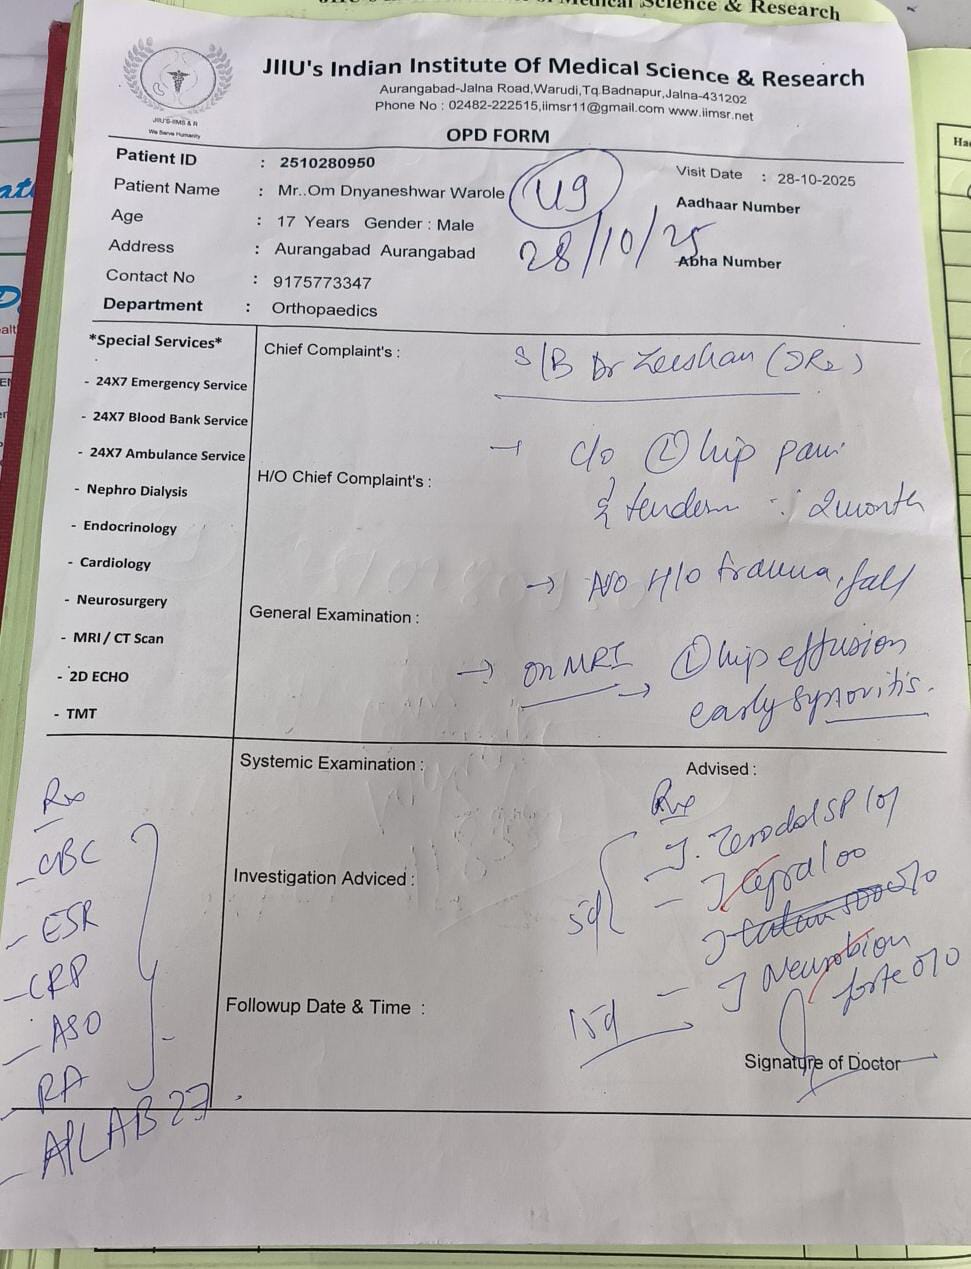 Medical Science & Research
JIIU'S-IIMS & R
We Serve Humanity
JIIU's Indian Institute Of Medical Science & Research
Aurangabad-Jalna Road,Warudi,Tq.Badnapur,Jalna-431202
Phone No : 02482-222515,iimsr11@gmail.com www.iimsr.net
OPD FORM
Patient ID : 2510280950
Visit Date : 28-10-2025
Patient Name : Mr..Om Dnyaneshwar Warole
U9
Aadhaar Number
Age : 17 Years Gender : Male
28/10/25
Address : Aurangabad Aurangabad
Abha Number
Contact No : 9175773347
Department : Orthopaedics
*Special Services*
- 24X7 Emergency Service
- 24X7 Blood Bank Service
- 24X7 Ambulance Service
- Nephro Dialysis
- Endocrinology
- Cardiology
- Neurosurgery
- MRI / CT Scan
- 2D ECHO
- TMT
Chief Complaint's :
S/B Dr Zeeshan (JR2)
→ c/o Ⓛ hip pain
H/O Chief Complaint's :
2month
→ No H/o trauma, fall
General Examination :
→ on MRI → Ⓛ hip effusion
early synovitis.
Systemic Examination :
Advised :
Rx
- CBC
- ESR
- CRP
- ASO
- RA
- HLAB 27
Investigation Adviced :
Followup Date & Time :
Rx
5d
- T. Zerodol SP
- T
T
15d - T Neurobion
forte
Signature of Doctor